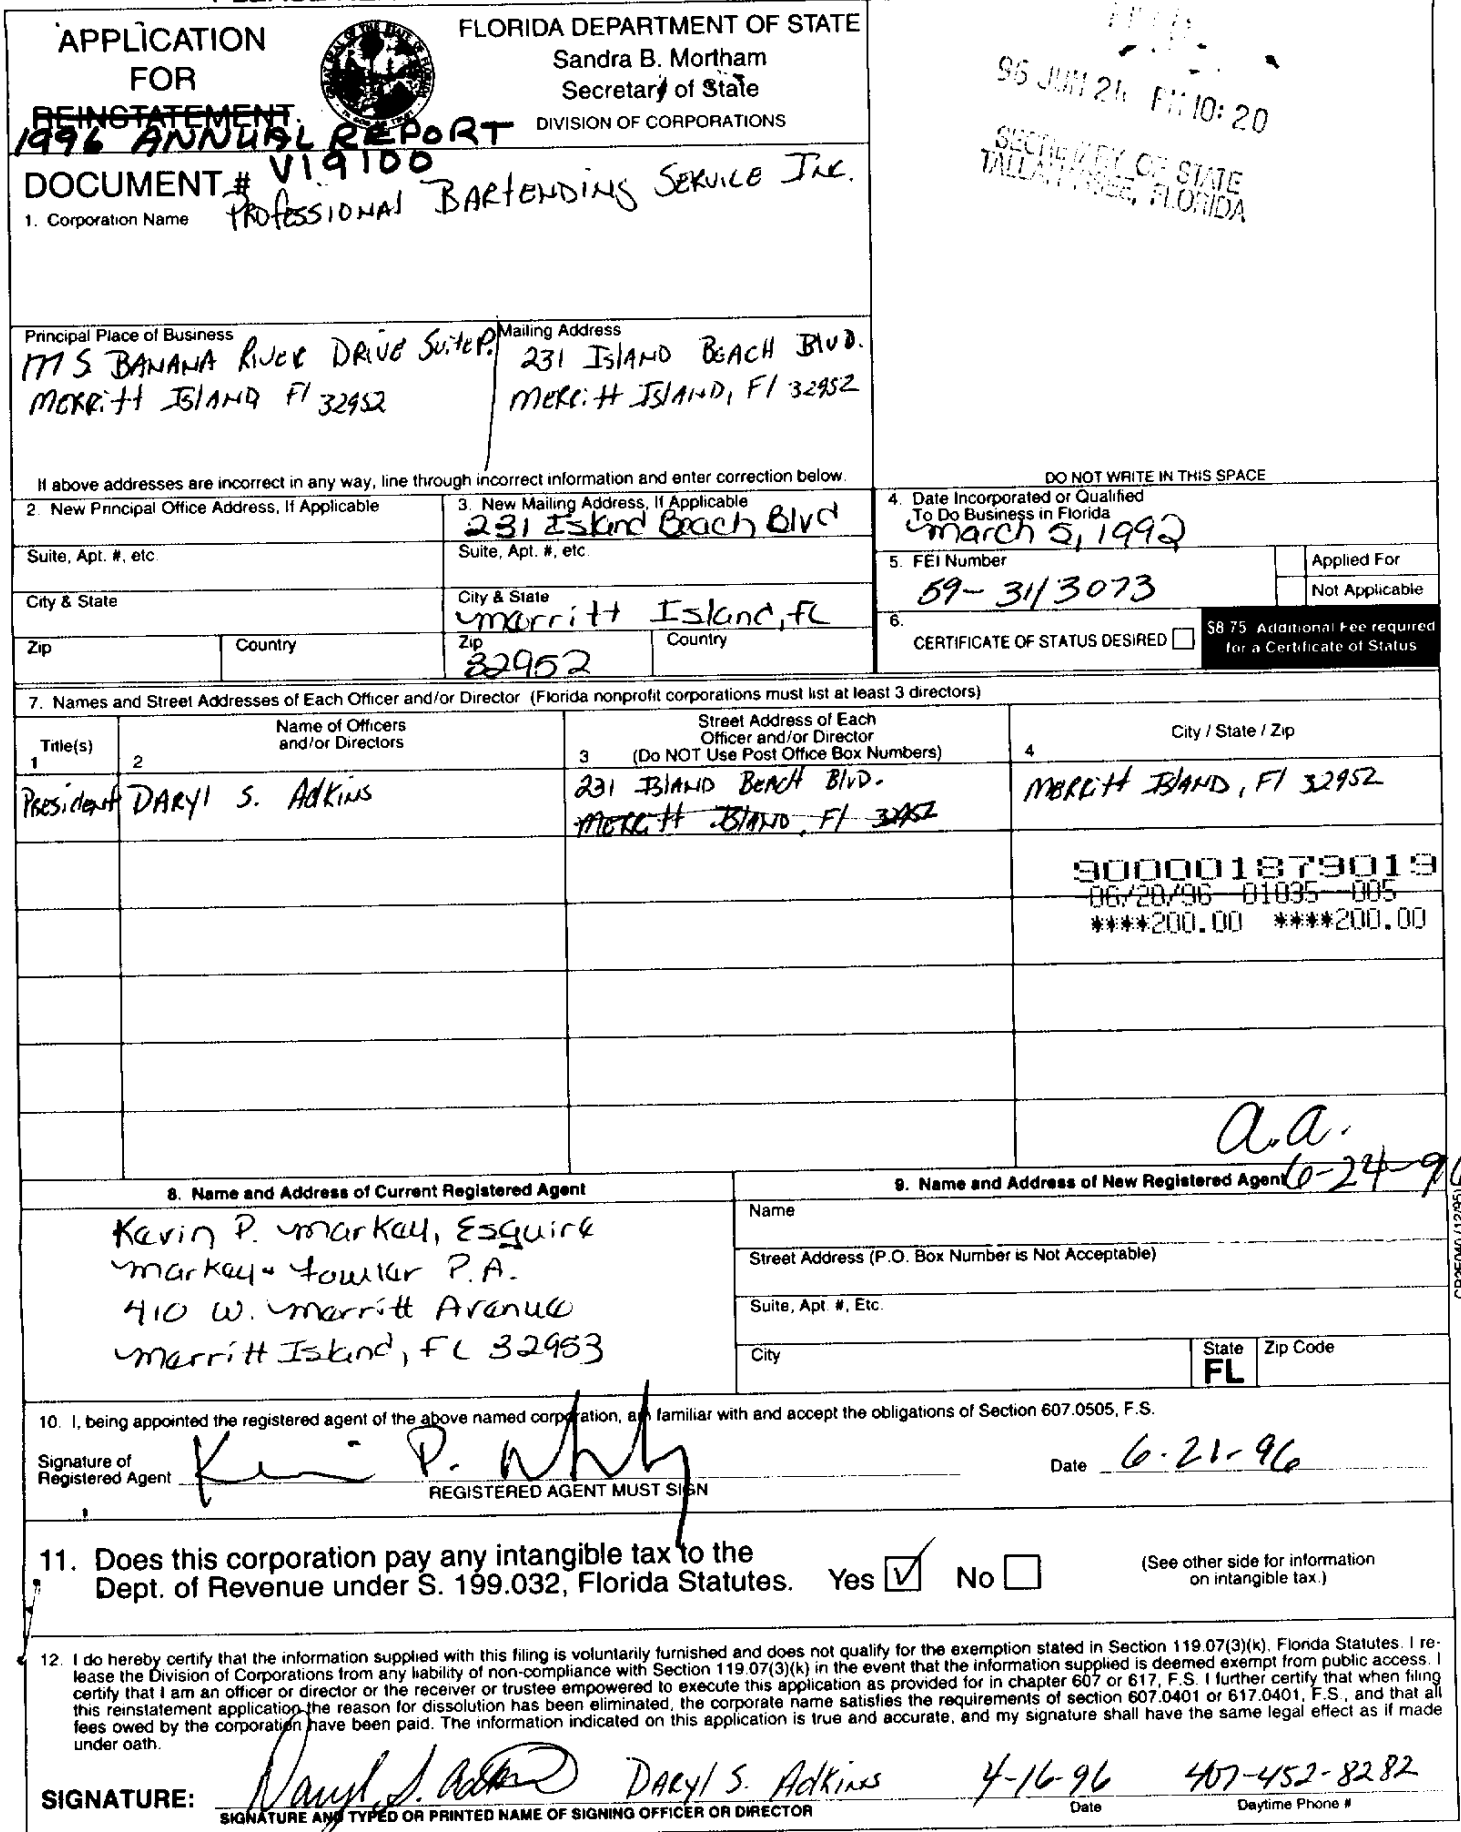 APPLICATION
FOR
REINSTATEMENT
1996 ANNUAL REPORT
FLORIDA DEPARTMENT OF STATE
Sandra B. Mortham
Secretary of State
DIVISION OF CORPORATIONS
96 JUN 21 PM 10:20
SECRETARY OF STATE
TALLAHASSEE, FLORIDA
DOCUMENT # V19100
1. Corporation Name Professional Bartending Service Inc.
Principal Place of Business
S. Banana River Drive Suite P.
Merritt Island Fl 32952
Mailing Address
231 Island Beach Blvd.
Merritt Island, Fl 32952
If above addresses are incorrect in any way, line through incorrect information and enter correction below.
DO NOT WRITE IN THIS SPACE
2. New Principal Office Address, If Applicable
Suite, Apt. #, etc.
City & State
Zip
Country
3. New Mailing Address, If Applicable
231 Island Beach Blvd
Suite, Apt. #, etc.
City & State
Merritt Island, FL
Zip
32952
Country
4. Date Incorporated or Qualified
To Do Business in Florida
March 5, 1992
5. FEI Number
59-3113073
Applied For
Not Applicable
6.
CERTIFICATE OF STATUS DESIRED
$8.75 Additional Fee required
for a Certificate of Status
7. Names and Street Addresses of Each Officer and/or Director (Florida nonprofit corporations must list at least 3 directors)
Title(s)
1
Name of Officers
and/or Directors
2
Street Address of Each
Officer and/or Director
3 (Do NOT Use Post Office Box Numbers)
City / State / Zip
4
President
Daryl S. Adkins
231 Island Beach Blvd.
Merritt Island, Fl 32952
Merritt Island, Fl 32952
900001879019
06/28/96--01035--005
****200.00 ****200.00
a.a.
6-24-96
8. Name and Address of Current Registered Agent
Kevin P. Markey, Esquire
Markey & Fowler P.A.
410 W. Merritt Avenue
Merritt Island, FL 32953
9. Name and Address of New Registered Agent
Name
Street Address (P.O. Box Number is Not Acceptable)
Suite, Apt. #, Etc.
City
State
FL
Zip Code
CR2E040 (12/95)
10. I, being appointed the registered agent of the above named corporation, am familiar with and accept the obligations of Section 607.0505, F.S.
Signature of
Registered Agent
REGISTERED AGENT MUST SIGN
Date 6-21-96
11. Does this corporation pay any intangible tax to the
Dept. of Revenue under S. 199.032, Florida Statutes. Yes No
(See other side for information
on intangible tax.)
12. I do hereby certify that the information supplied with this filing is voluntarily furnished and does not qualify for the exemption stated in Section 119.07(3)(k), Florida Statutes. I re-
lease the Division of Corporations from any liability of non-compliance with Section 119.07(3)(k) in the event that the information supplied is deemed exempt from public access. I
certify that I am an officer or director or the receiver or trustee empowered to execute this application as provided for in chapter 607 or 617, F.S. I further certify that when filing
this reinstatement application the reason for dissolution has been eliminated, the corporate name satisfies the requirements of section 607.0401 or 617.0401, F.S., and that all
fees owed by the corporation have been paid. The information indicated on this application is true and accurate, and my signature shall have the same legal effect as if made
under oath.
SIGNATURE: Daryl S. Adkins Daryl S. Adkins 4-16-96 407-452-8282
SIGNATURE AND TYPED OR PRINTED NAME OF SIGNING OFFICER OR DIRECTOR
Date
Daytime Phone #